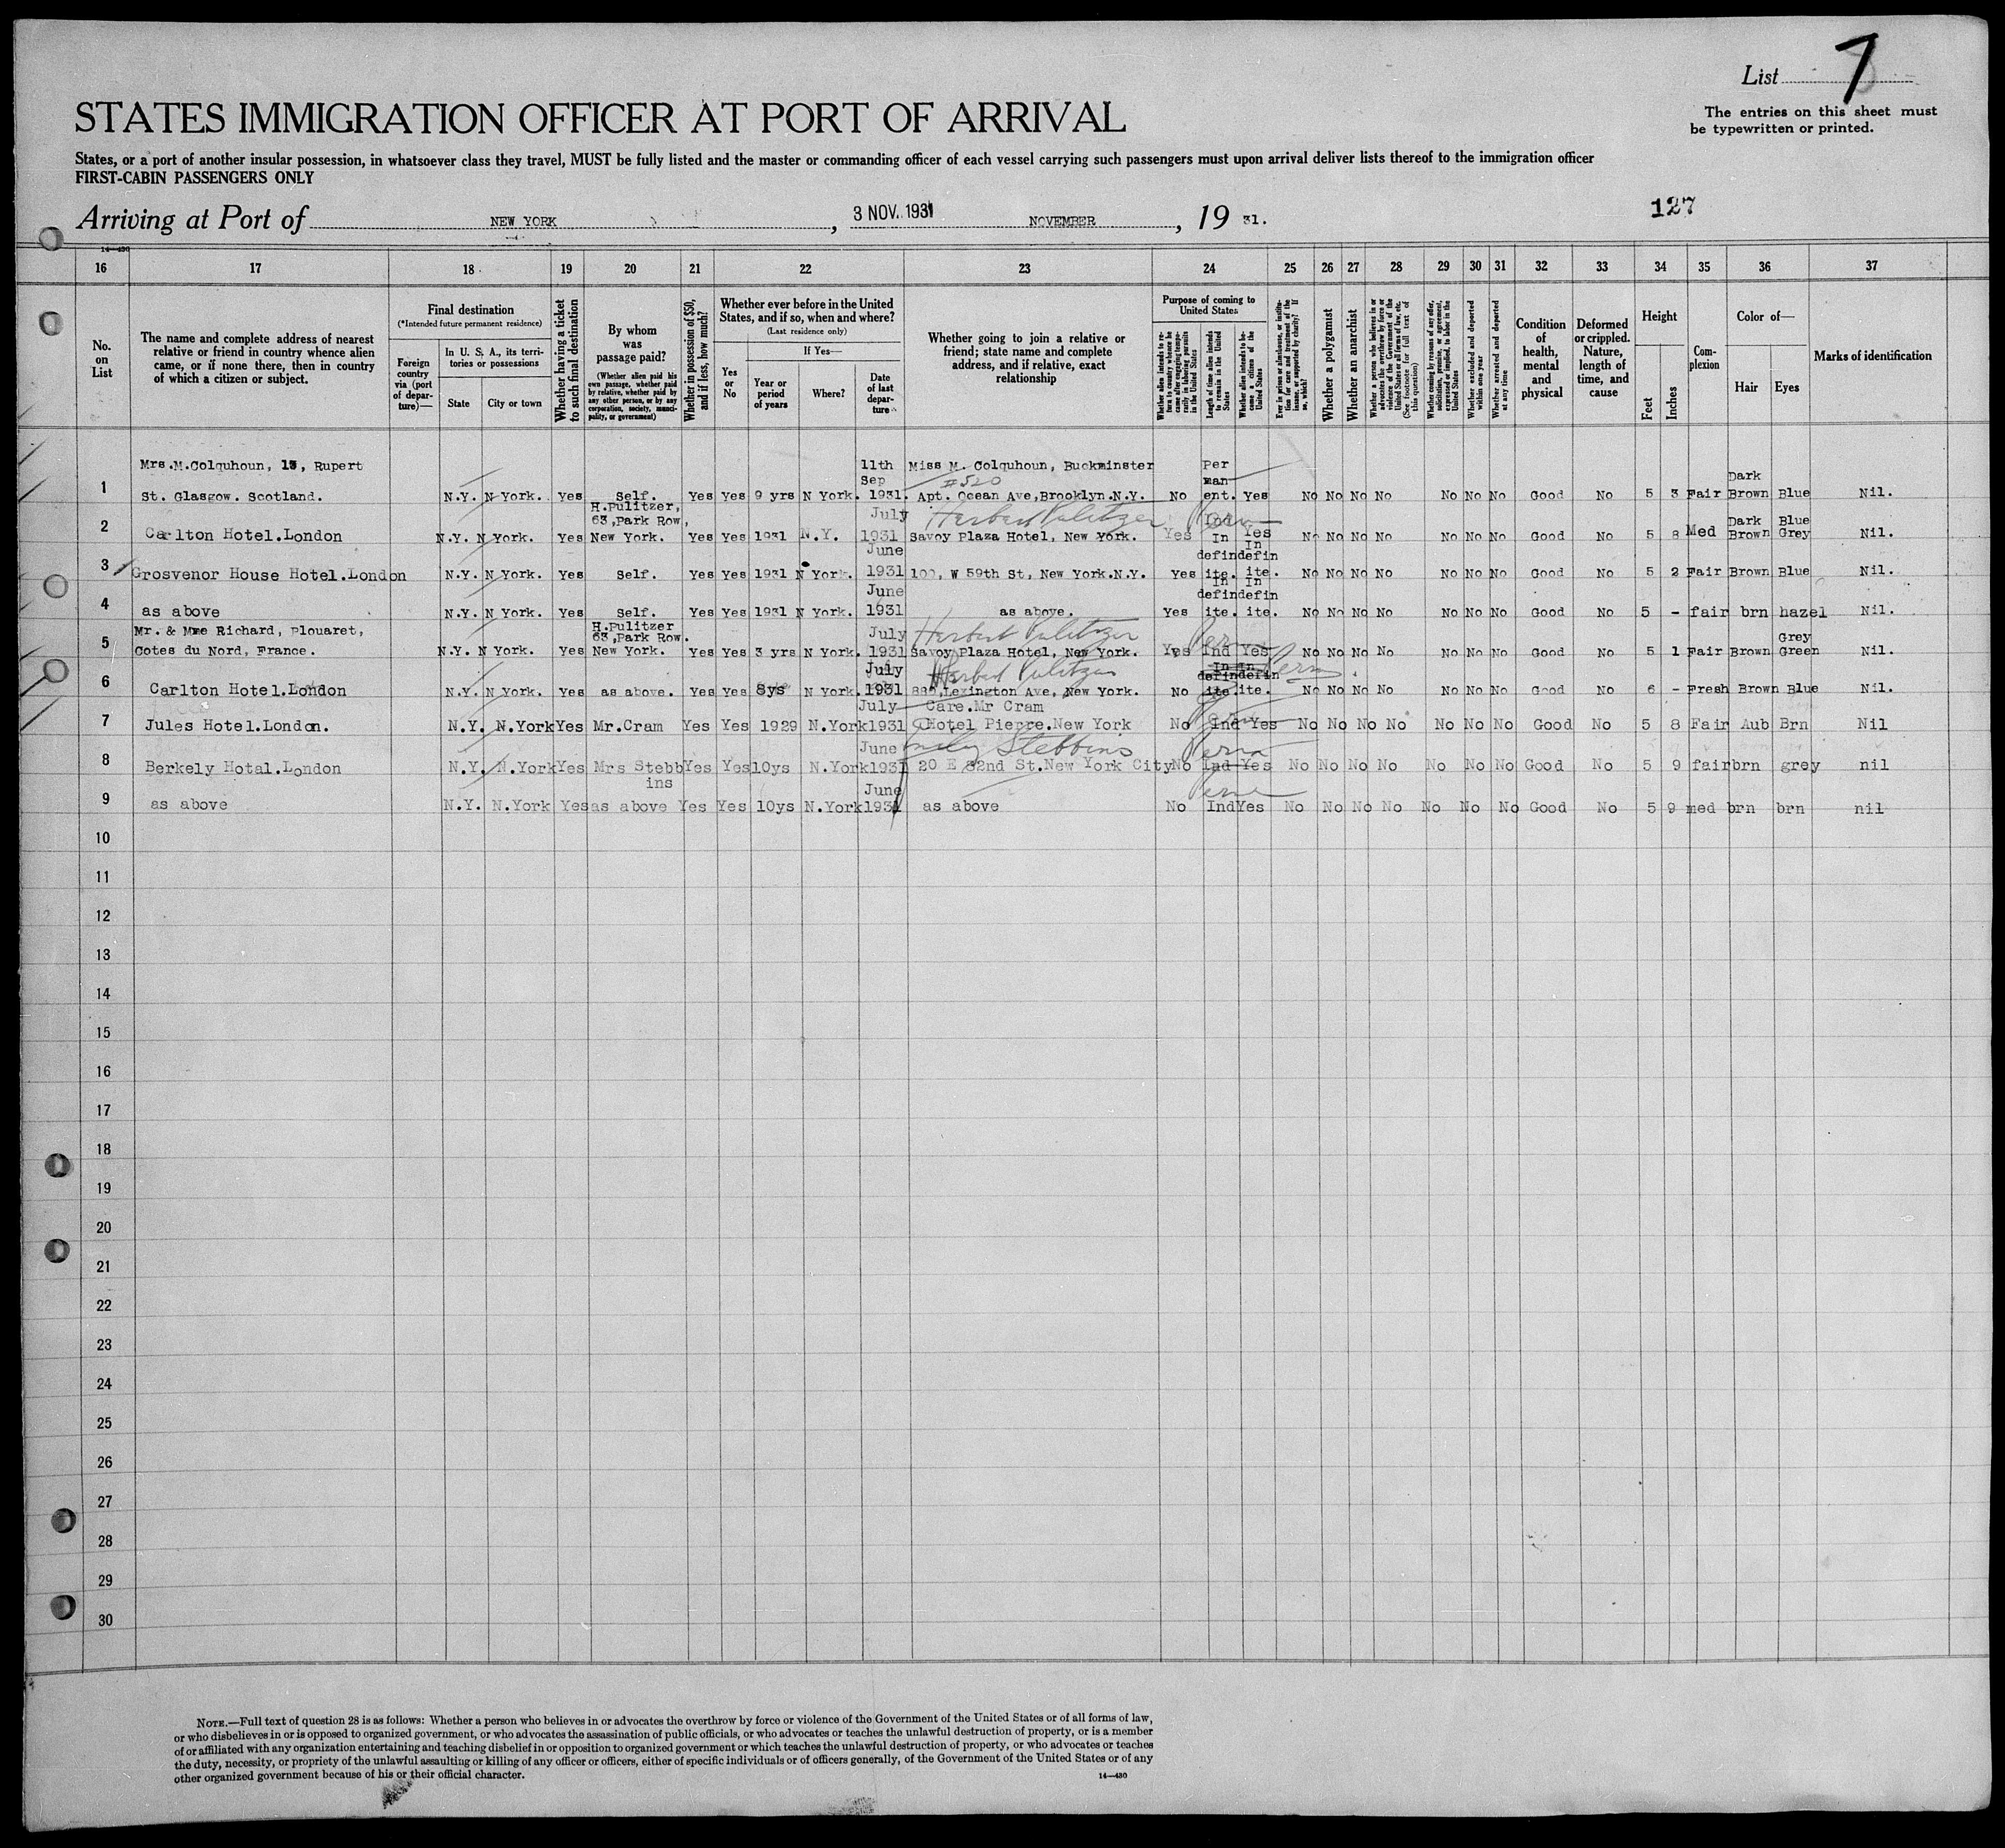 List 7
The entries on this sheet must
be typewritten or printed.
STATES IMMIGRATION OFFICER AT PORT OF ARRIVAL
States, or a port of another insular possession, in whatsoever class they travel, MUST be fully listed and the master or commanding officer of each vessel carrying such passengers must upon arrival deliver lists thereof to the immigration officer
FIRST-CABIN PASSENGERS ONLY
Arriving at Port of NEW YORK, 3 NOV. 1931 NOVEMBER, 19 31.
127
14—430
16 17 18 19 20 21 22 23 24 25 26 27 28 29 30 31 32 33 34 35 36 37
No. on List
The name and complete address of nearest relative or friend in country whence alien came, or if none there, then in country of which a citizen or subject.
Final destination
(*Intended future permanent residence)
Foreign country via (port of departure)—
In U. S. A., its territories or possessions
State
City or town
Whether having a ticket to such final destination
By whom was passage paid?
(Whether alien paid his own passage, whether paid by relative, whether paid by any other person, or by any corporation, society, municipality, or government)
Whether in possession of $50, and if less, how much?
Whether ever before in the United States, and if so, when and where?
(Last residence only)
Yes or No
If Yes—
Year or period of years
Where?
Date of last departure
Whether going to join a relative or friend; state name and complete address, and if relative, exact relationship
Purpose of coming to United States
Whether alien intends to return to country whence he came after engaging temporarily in laboring pursuits in the United States
Length of time alien intends to remain in the United States
Whether alien intends to become a citizen of the United States
Ever in prison or almshouse, or institution for care and treatment of the insane, or supported by charity? If so, which?
Whether a polygamist
Whether an anarchist
Whether a person who believes in or advocates the overthrow by force or violence of the Government of the United States or all forms of law, etc. (See footnote for full text of this question)
Whether coming by reasons of any offer, solicitation, promise, or agreement, expressed or implied, to labor in the United States
Whether excluded and deported within one year
Whether arrested and deported at any time
Condition of health, mental and physical
Deformed or crippled. Nature, length of time, and cause
Height
Feet
Inches
Complexion
Color of—
Hair
Eyes
Marks of identification
1 Mrs.M.Colquhoun, 13, Rupert St. Glasgow. Scotland. N.Y. N York. Yes Self. Yes Yes 9 yrs N York. 11th Sep 1931. Miss M. Colquhoun, Buckminster #520 Apt. Ocean Ave,Brooklyn.N.Y. No Per man- ent. Yes No No No No No No No Good No 5 3 Fair Dark Brown Blue Nil.
2 Carlton Hotel.London N.Y. N York. Yes H.Pulitzer, 63,Park Row, New York. Yes Yes 1931 N.Y. July 1931 Herbert Pulitzer Savoy Plaza Hotel, New York. Yes Ind Yes No No No No No No No Good No 5 8 Med Dark Brown Blue Grey Nil.
3 Grosvenor House Hotel.London N.Y. N York. Yes Self. Yes Yes 1931 N York. June 1931 100, W 59th St, New York.N.Y. Yes In defin ite. In defin ite. No No No No No No No Good No 5 2 Fair Brown Blue Nil.
4 as above N.Y. N York. Yes Self. Yes Yes 1931 N York. June 1931 as above. Yes In defin ite. In defin ite. No No No No No No No Good No 5 - fair brn hazel Nil.
5 Mr. & Mme Richard, Plouaret, Cotes du Nord, France. N.Y. N York. Yes H.Pulitzer 63,Park Row. New York. Yes Yes 3 yrs N York. July 1931 Herbert Pulitzer Savoy Plaza Hotel, New York. Yes Perm Ind Yes No No No No No No No Good No 5 1 Fair Brown Grey Green Nil.
6 Carlton Hotel.London N.Y. N York. Yes as above. Yes Yes 8ys N York. July 1931 Herbert Pulitzer Lexington Ave, New York. No In defin ite. In defin ite. Perm No No No No No No No Good No 6 - Fresh Brown Blue Nil.
7 Jules Hotel.London. N.Y. N.York Yes Mr.Cram Yes Yes 1929 N.York July 1931 Care.Mr Cram Hotel Pierre.New York No Ind Yes No No No No No No No Good No 5 8 Fair Aub Brn Nil
8 Berkely Hotal.London N.Y. N.York Yes Mrs Stebb ins Yes Yes 10ys N.York June 1931 Stebbins 20 E 82nd St.New York City No Perm Ind Yes No No No No No No No Good No 5 9 fair brn grey nil
9 as above N.Y. N.York Yes as above Yes Yes 10ys N.York June 1931 as above No Ind Yes No No No No No No No Good No 5 9 med brn brn nil
10
11
12
13
14
15
16
17
18
19
20
21
22
23
24
25
26
27
28
29
30
NOTE.—Full text of question 28 is as follows: Whether a person who believes in or advocates the overthrow by force or violence of the Government of the United States or of all forms of law,
or who disbelieves in or is opposed to organized government, or who advocates the assassination of public officials, or who advocates or teaches the unlawful destruction of property, or is a member
of or affiliated with any organization entertaining and teaching disbelief in or opposition to organized government or which teaches the unlawful destruction of property, or who advocates or teaches
the duty, necessity, or propriety of the unlawful assaulting or killing of any officer or officers, either of specific individuals or of officers generally, of the Government of the United States or of any
other organized government because of his or their official character.
14—430